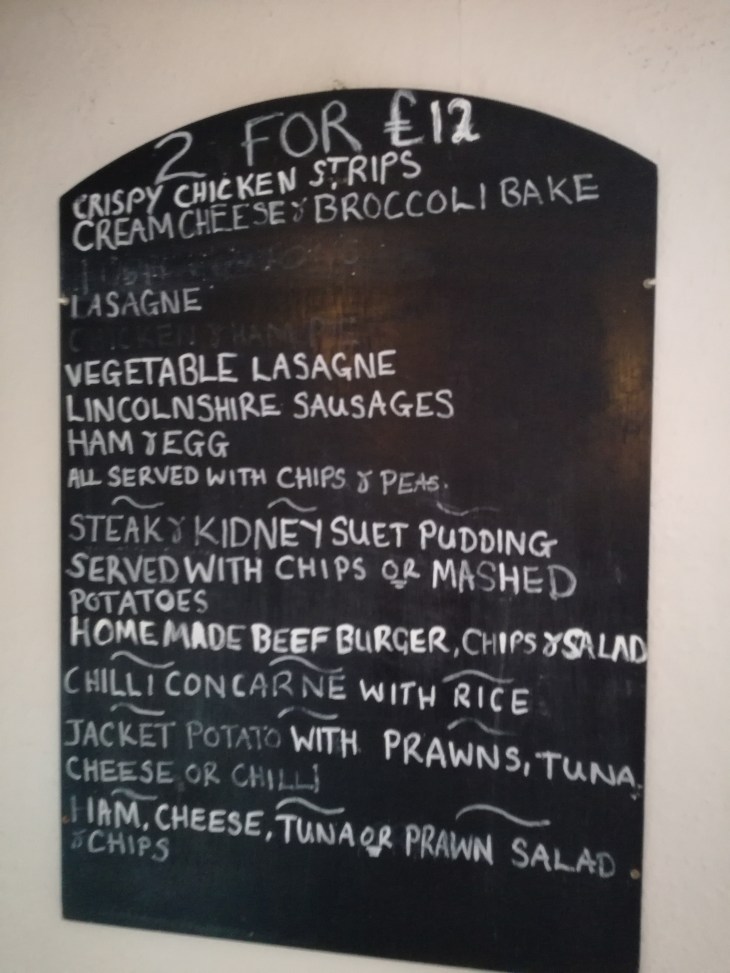 2 FOR £12
CRISPY CHICKEN STRIPS
CREAM CHEESE & BROCCOLI BAKE
LASAGNE
CHICKEN & HAM PIE
VEGETABLE LASAGNE
LINCOLNSHIRE SAUSAGES
HAM & EGG
ALL SERVED WITH CHIPS & PEAS.
STEAK & KIDNEY SUET PUDDING
SERVED WITH CHIPS OR MASHED
POTATOES
HOMEMADE BEEF BURGER, CHIPS & SALAD
CHILLI CON CARNE WITH RICE
JACKET POTATO WITH PRAWNS, TUNA,
CHEESE OR CHILLI
HAM, CHEESE, TUNA OR PRAWN SALAD
& CHIPS